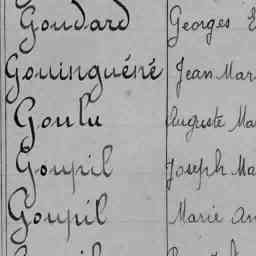 Goudard Georges E
Gouinguéné Jean Mar
Goulu Auguste Ma
Goupil Joseph Ma
Goupil Marie An